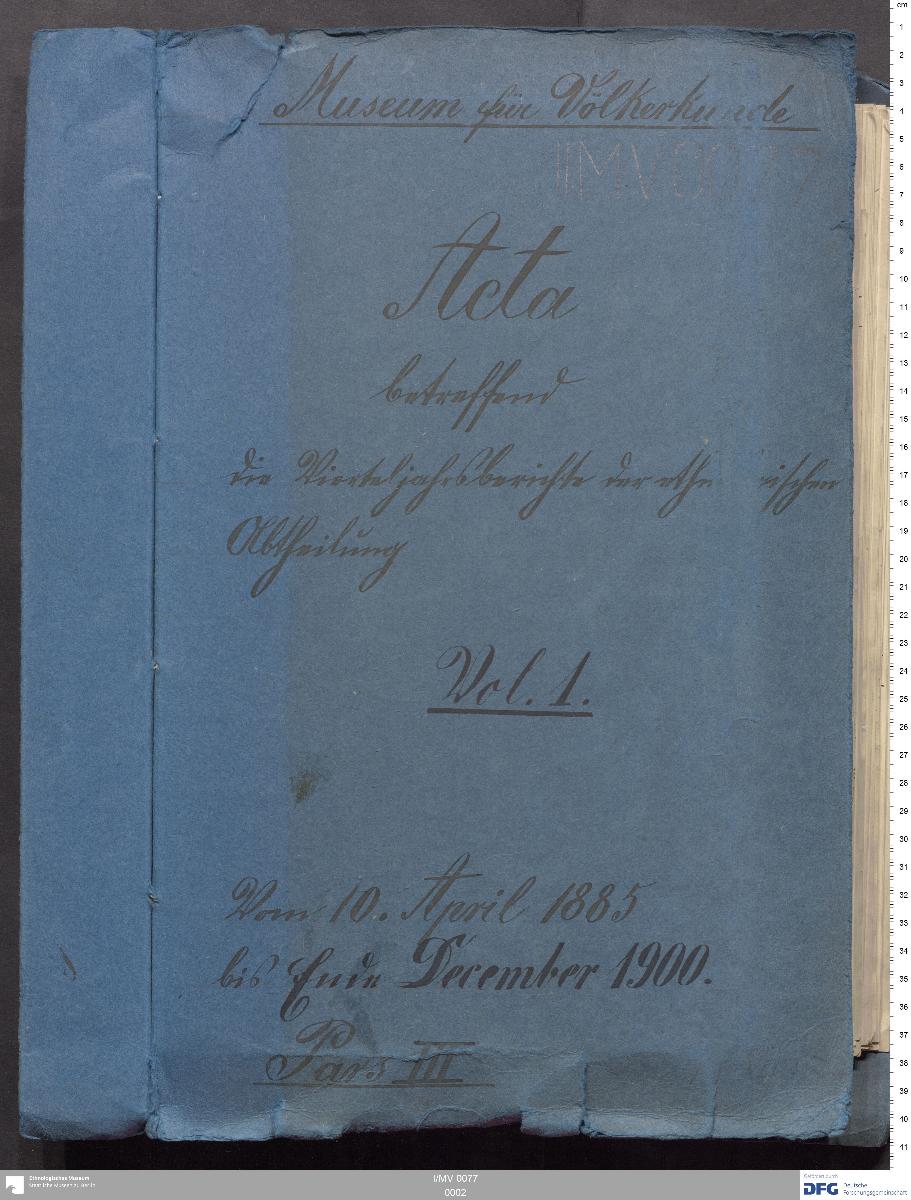 Museum für Völkerkunde
I/MV 0077
Acta
betreffend
die Vierteljahrsberichte der ischen
Abtheilung
Vol. 1.
Vom 10. April 1885
bis Ende December 1900.
Pars III
Ethnologisches Museum
Staatliche Museen zu Berlin
I/MV 0077
0002
Gefördert durch
DFG Deutsche
Forschungsgemeinschaft
cm
1
2
3
4
5
6
7
8
9
10
11
12
13
14
15
16
17
18
19
20
21
22
23
24
25
26
27
28
29
30
31
32
33
34
35
36
37
38
39
40
41